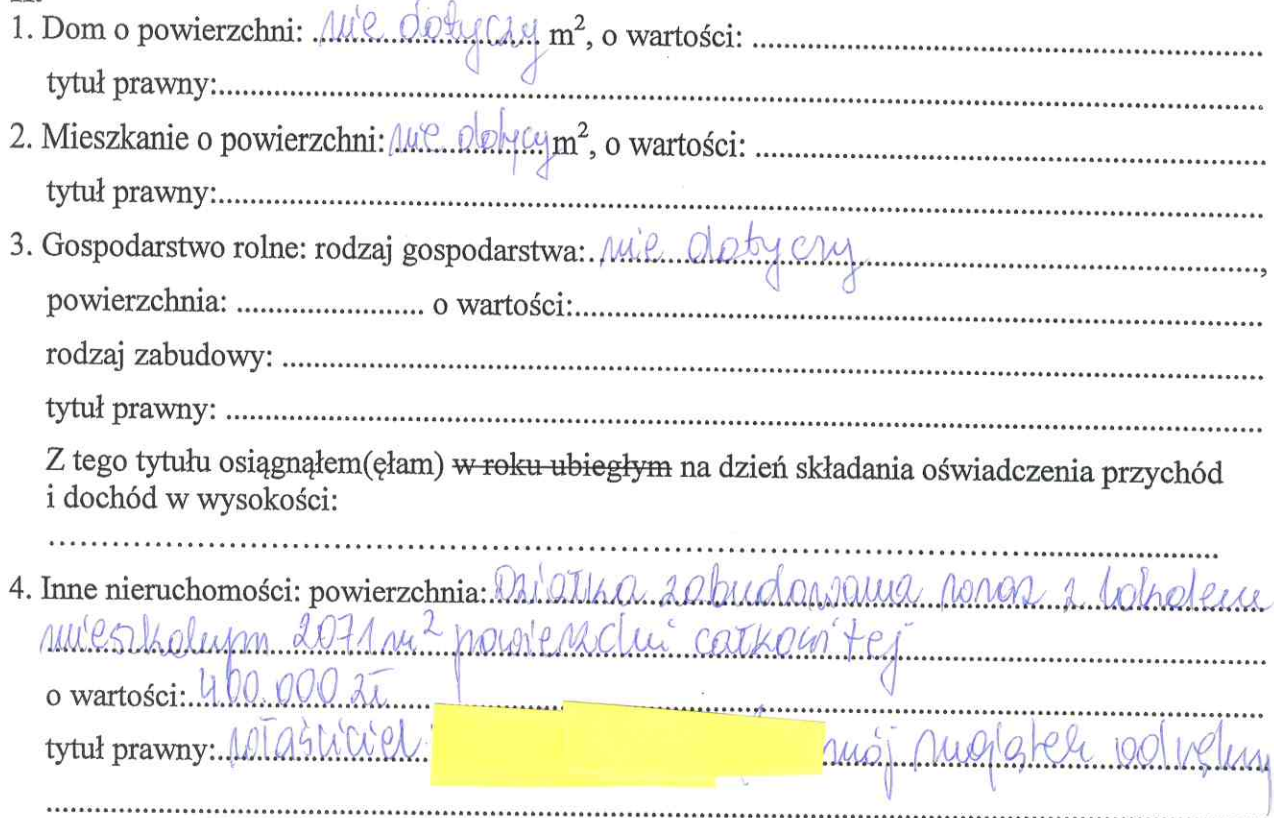 1. Dom o powierzchni: nie dotyczy m², o wartości: ....................
tytuł prawny:....................
2. Mieszkanie o powierzchni: nie dotyczy m², o wartości: ....................
tytuł prawny:....................
3. Gospodarstwo rolne: rodzaj gospodarstwa: nie dotyczy....................,
powierzchnia: .................... o wartości:....................
rodzaj zabudowy: ....................
tytuł prawny: ....................
Z tego tytułu osiągnąłem(ęłam) w roku ubiegłym na dzień składania oświadczenia przychód
i dochód w wysokości:
....................
4. Inne nieruchomości: powierzchnia: Działka zabudowana wraz z lokalem
mieszkalnym 2071 m² powierzchni całkowitej
o wartości: 400.000 zł
tytuł prawny: właściciel mój majątek odrębny
....................